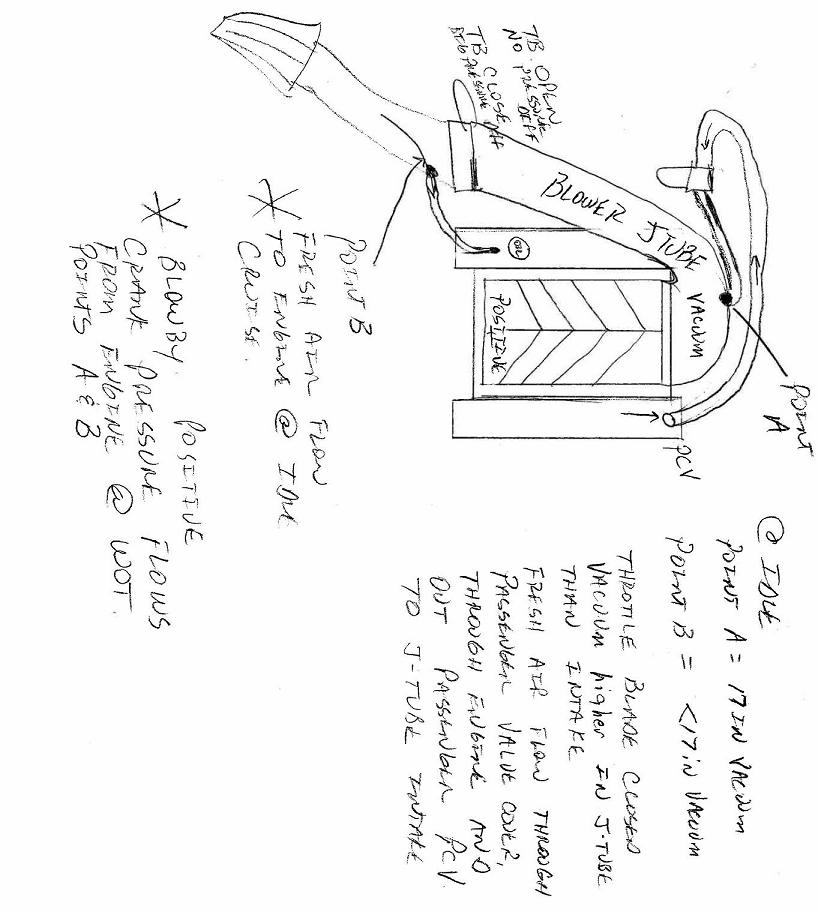 @ IDLE
POINT A = 17 IN VACUUM
POINT B = <17 IN VACUUM
THROTLE BLADE CLOSED
VACUUM higher IN J-TUBE
THAN INTAKE
FRESH AIR FLOW THROUGH
PASSENGER VALVE COVER,
THROUGH ENGINE AND
OUT PASSENGER PCV.
TO J-TUBE INTAKE
POINT
A
PCV
BLOWER J TUBE
VACUUM
POSITIVE
OIL
TB OPEN
NO PRESSURE
DIFF
TB CLOSE
PRESSURE DIFF
POINT B
* FRESH AIR FLOW
TO ENGINE @ IDLE
CRUISE.
* BLOWBY. POSITIVE
CRANK PRESSURE FLOWS
FROM ENGINE @ WOT.
POINTS A & B